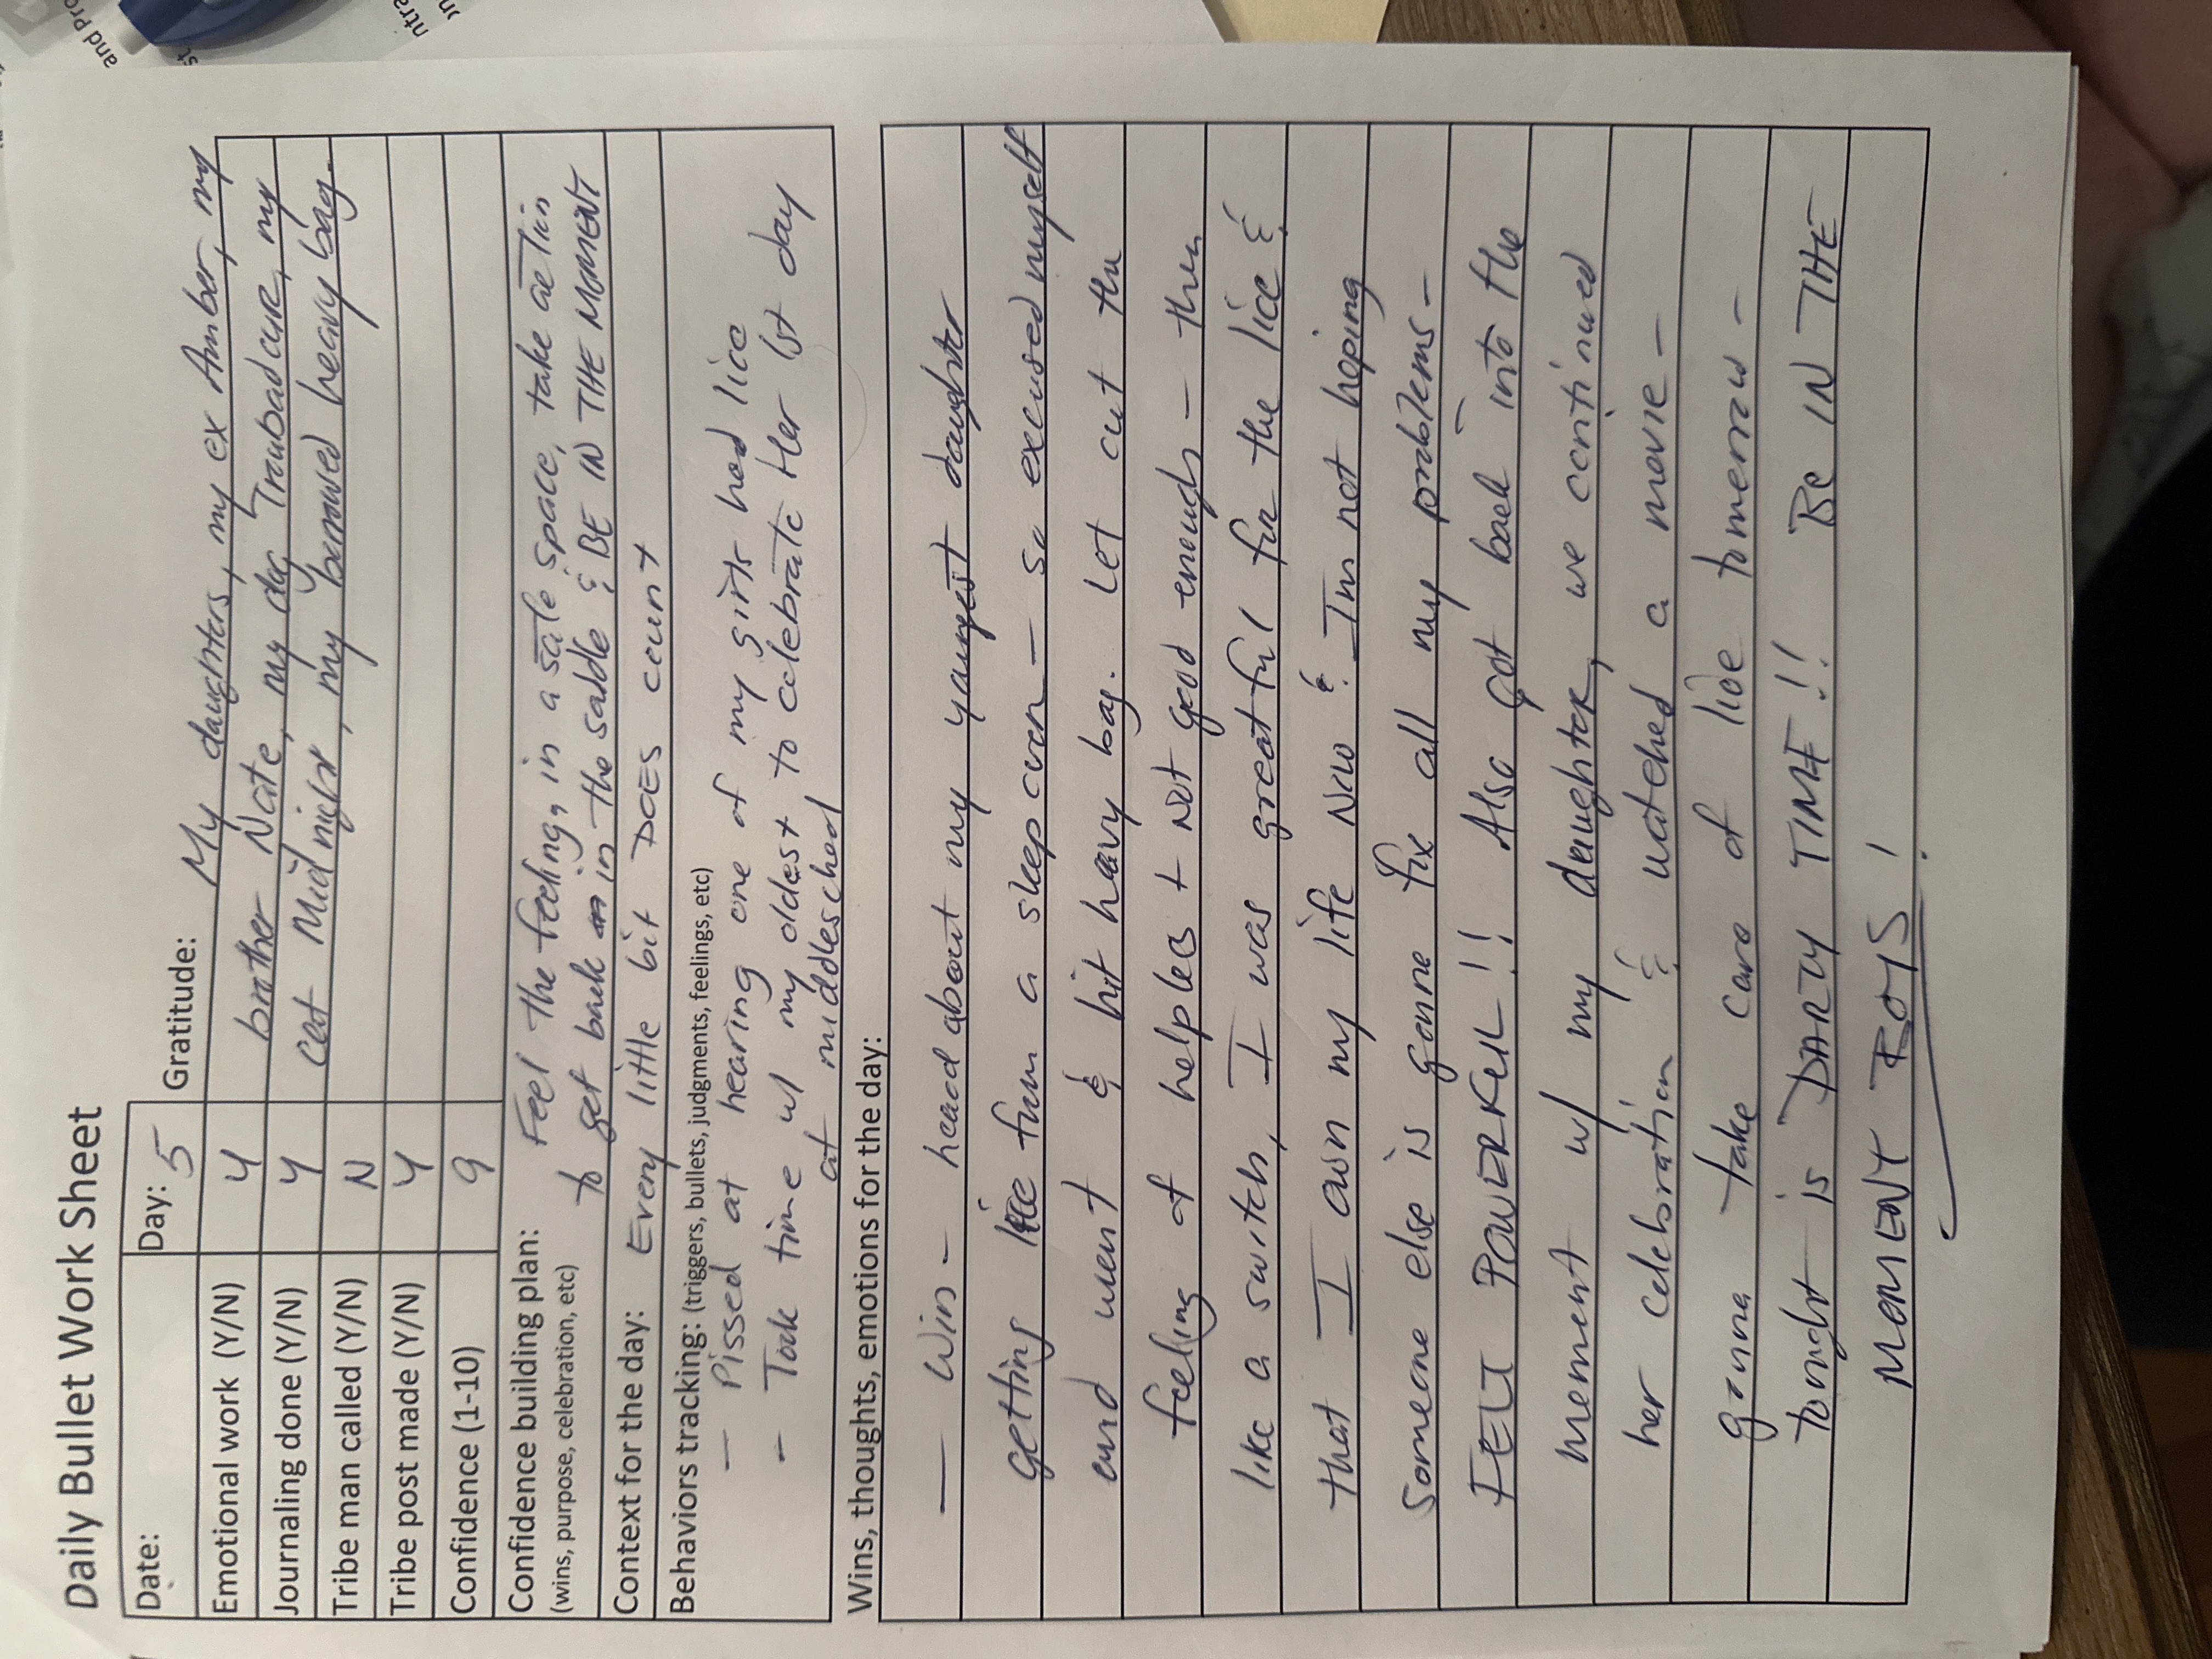 Daily Bullet Work Sheet
Date: Day: 5 Gratitude: My daughters, my ex Amber, my
Emotional work (Y/N) Y brother Nate, my dog Troubadour, my
Journaling done (Y/N) Y cat Midnight, my borrowed heavy bag.
Tribe man called (Y/N) N
Tribe post made (Y/N) Y
Confidence (1-10) 9
Confidence building plan: Feel the feeling, in a safe space, take action
(wins, purpose, celebration, etc) to get back in the saddle & BE IN THE MOMENT
Context for the day: Every little bit DOES count
Behaviors tracking: (triggers, bullets, judgments, feelings, etc)
— Pissed at hearing one of my girls had lice
– Took time w/ my oldest to celebrate Her 1st day
at middleschool
Wins, thoughts, emotions for the day:
— Win – heard about my youngest daughter
getting lice from a sleepover – so excused myself
and went & hit heavy bag. Let out the
feeling of helpless + Not good enough – then
like a switch, I was greatful for the lice &
that I own my life Now & I'm not hoping
Someone else is gonna fix all my problems –
FELT POWERFUL!! Also got back into the
moment w/ my daughter, we continued
her celebration & watched a movie –
gonna take care of lice tomorrow –
tonight is PARTY TIME!! Be IN THE
MOMENT BOYS!
and Pro
st
ntra
on